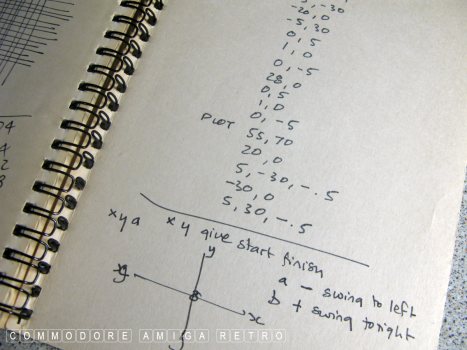 04
-30
-20, 0
-5, 30
0, 5
1, 0
0, -5
28, 0
0, 5
1, 0
0, -5
PLOT 55, 70
20, 0
5, -30, -.5
-30, 0
5, 30, -.5
x y a x y give start finish
a - swing to left
b + swing to right
y
x
y
COMMODORE AMIGA RETRO